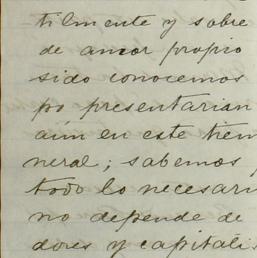 tilmente y sobre
de amor propio
sido conocemos
po presentarian
aún en este tiem
neral; sabemos
todo lo necesari
no depende de
dores y capitalis